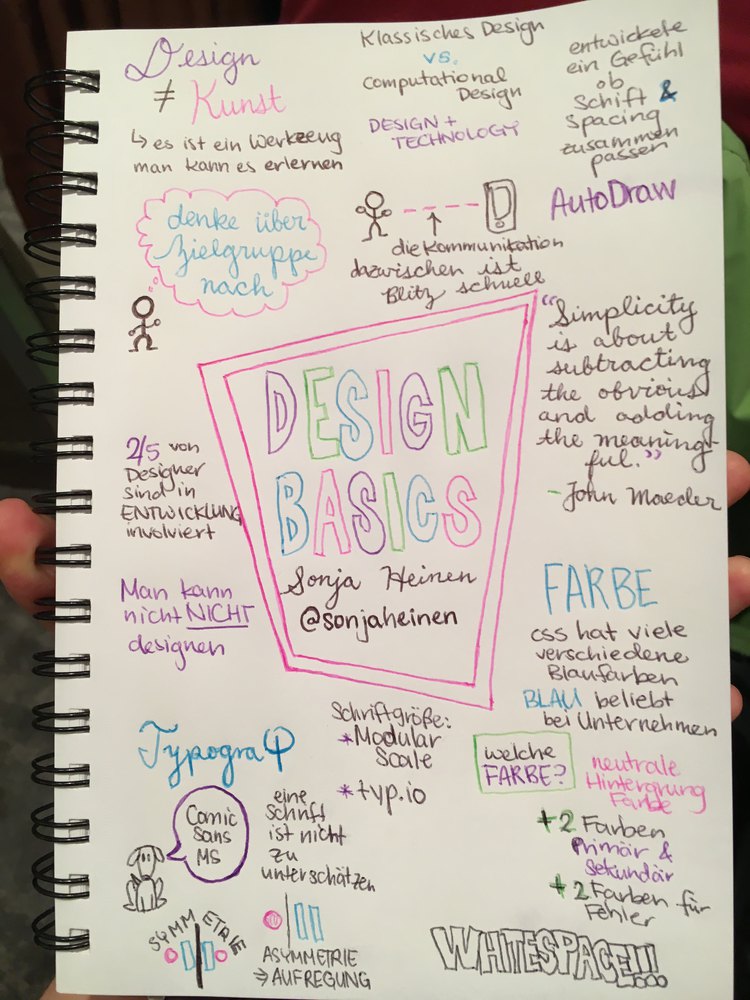 Design
≠ Kunst
↳ es ist ein Werkzeug
man kann es erlernen
Klassisches Design
vs.
Computational
Design
DESIGN +
TECHNOLOGY
entwickele
ein Gefühl
ob
Schift &
Spacing
zusammen
passen
AutoDraw
denke über
Zielgruppe
nach
die Kommunikation
dazwischen ist
Blitz schnell
"Simplicity
is about
subtracting
the obvious
and adding
the meaning-
ful."
- John Maeder
DESIGN
BASICS
Sonja Heinen
@sonjaheinen
2/5 von
Designer
sind in
ENTWICKLUNG
involviert
Man kann
nicht NICHT
designen
FARBE
css hat viele
verschiedene
Blaufarben
BLAU beliebt
bei Unternehmen
welche
FARBE?
neutrale
Hintergrung
Farbe
+ 2 Farben
Primär &
Sekundär
+ 2 Farben für
Fehler
Schriftgröße:
* Modular
Scale
* typ.io
Typograφ
Comic
Sans
MS
eine
Schrift
ist nicht
zu
unterschätzen
SYMMETRIE
ASYMMETRIE
⇒ AUFREGUNG
WHITESPACE!!!...